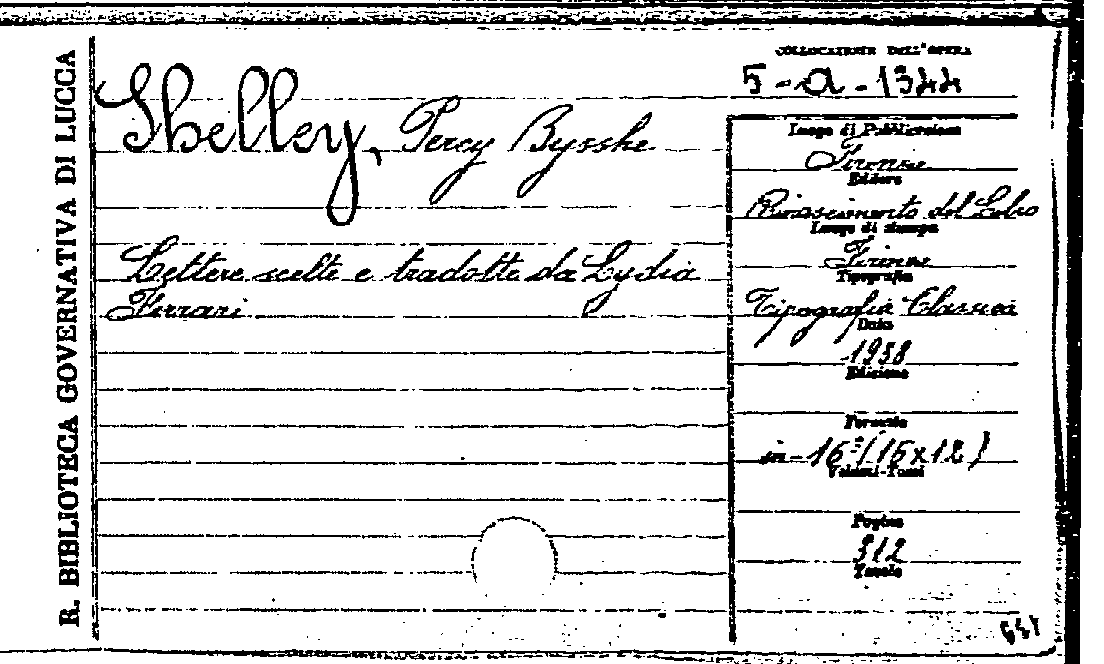 R. BIBLIOTECA GOVERNATIVA DI LUCCA
Shelley, Percy Bysshe
Lettere scelte e tradotte da Lydia
Ferrari
COLLOCAZIONE DELL'OPERA
5-a-1344
Luogo di Pubblicazione
Firenze
Editore
Rinascimento del Libro
Luogo di stampa
Firenze
Tipografia
Tipografia Classica
Data
1938
Edizione
Formato
in-16º (16x12)
Volumi-Tomi
Pagine
312
Tavole